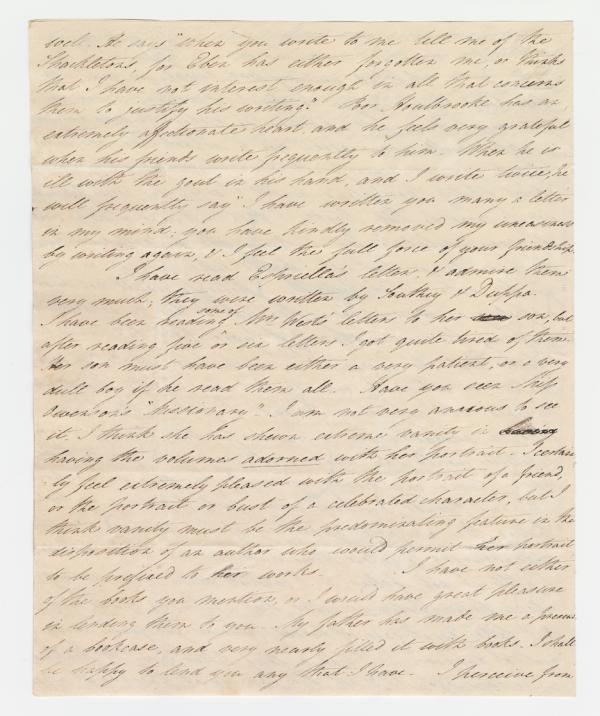 well. He says "when you write to me tell me of the
Shackletons, for Eben has either forgotten me, or thinks
that I have not interest enough in all that concerns
them to justify his writing." Poor Houlbrooke has an
extremely affectionate heart, and he feels very grateful
when his friends write frequently to him. When he is
ill with the gout in his hand, and I write twice, he
will frequently say "I have written you many a letter
in my mind; you have kindly removed my uneasiness
by writing again, & I feel the full force of your friendship.
I have read Espriella's letters, & admire them
very much; they were written by Southey & Duppa.
I have been reading some of Mrs West's letters to her son, but
after reading five or six letters I got quite tired of them.
Her son must have been either a very patient, or a very
dull boy if he read them all. Have you seen Miss
Owenson's "Missionary." I am not very anxious to see
it. I think she has shewn extreme vanity in
having the volumes adorned with her portrait. I certain
ly feel extremely pleased with the portrait of a friend,
or the portrait or bust of a celebrated character, but I
think vanity must be the predominating feature in the
disposition of an author who would permit her portrait
to be prefixed to her works. I have not either
of the books you mention, or I would have great pleasure
in lending them to you. My father has made me a present
of a bookcase, and very nearly filled it with books. I shall
be happy to lend you any that I have. I perceive from